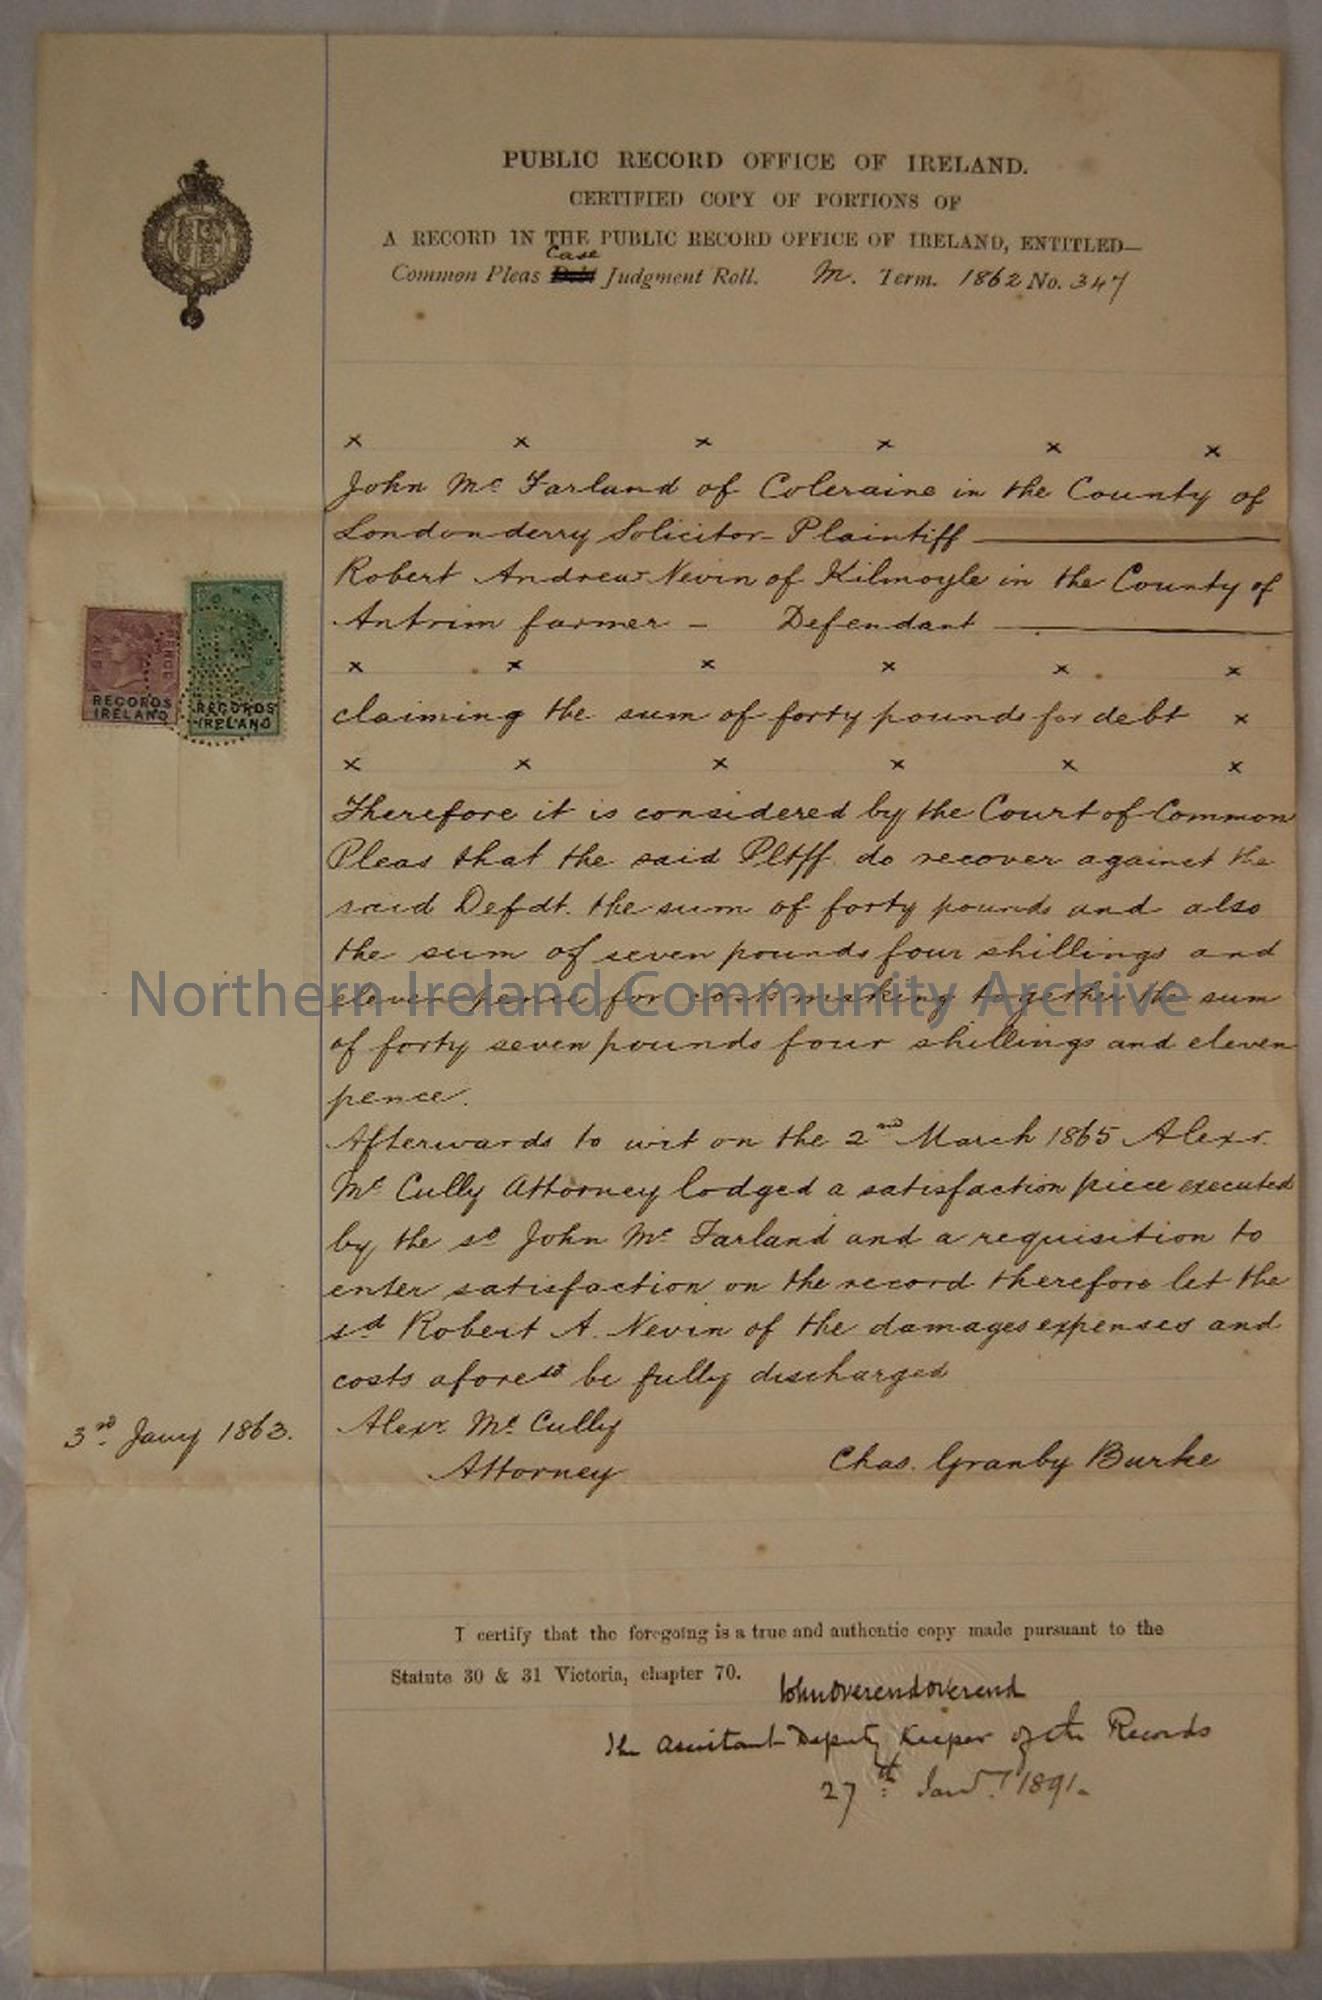 PUBLIC RECORD OFFICE OF IRELAND.
CERTIFIED COPY OF PORTIONS OF
A RECORD IN THE PUBLIC RECORD OFFICE OF IRELAND, ENTITLED—
Case
Common Pleas Debt Judgment Roll. M. Term. 1862 No. 347
x x x x x x
John Mc Farland of Coleraine in the County of
Londonderry Solicitor - Plaintiff
Robert Andrew Nevin of Kilmoyle in the County of
Antrim farmer - Defendant
x x x x x x
SIX PENCE
RECORDS
IRELAND
ONE
RECORDS
IRELAND
claiming the sum of forty pounds for debt x
x x x x x x
Therefore it is considered by the Court of Common
Pleas that the said Pltff. do recover against the
said Defdt. the sum of forty pounds and also
the sum of seven pounds four shillings and
eleven pence for costs making together the sum
of forty seven pounds four shillings and eleven
pence.
Northern Ireland Community Archive
Afterwards to wit on the 2nd March 1865 Alexr.
Mc Cully Attorney lodged a satisfaction piece executed
by the sd John Mc Farland and a requisition to
enter satisfaction on the record therefore let the
sd Robert A. Nevin of the damages expenses and
costs aforesd be fully discharged
3rd Jany 1863.
Alexr. Mc Cully
Attorney
Chas. Granby Burke
I certify that the foregoing is a true and authentic copy made pursuant to the
Statute 30 & 31 Victoria, chapter 70.
John Overend Overend
The Assistant Deputy Keeper of the Records
27th Jany. 1891.